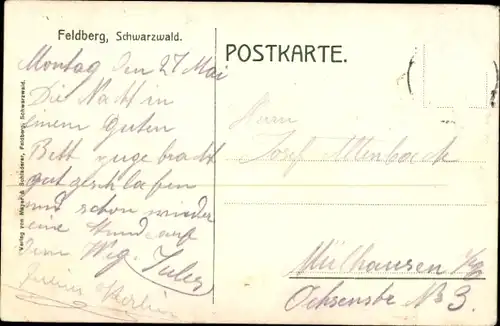 Feldberg, Schwarzwald.
POSTKARTE.
Montag den 27 Mai
Die Nacht in
einem guten
Bett zuge bracht
gut geschlafen
und schon wieder
eine Stunde auf
dem Weg. Jules
Herrn
Josef Altenbach
Mülhausen
Ochsenstr No 3
Verlag von Meyer & Schladerer, Feldberg, Schwarzwald.